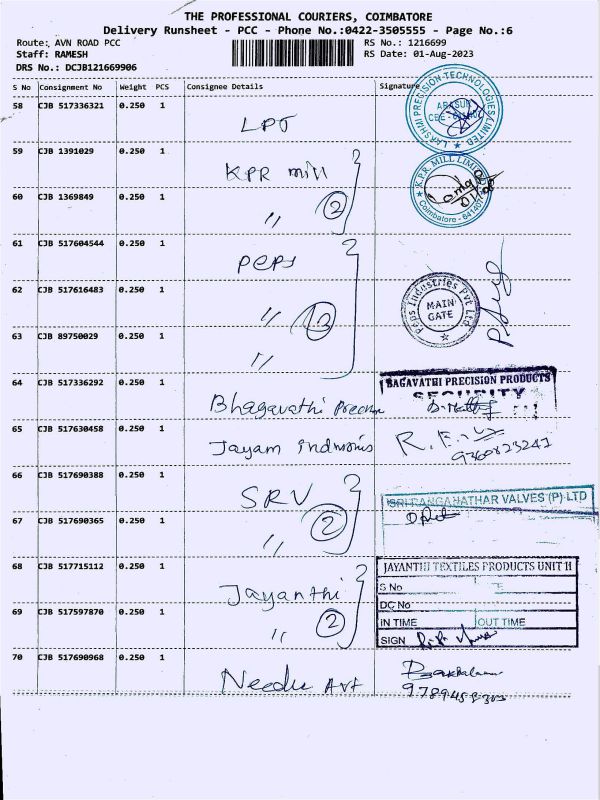 THE PROFESSIONAL COURIERS, COIMBATORE
Delivery Runsheet - PCC - Phone No.:0422-3505555 - Page No.:6
Route: AVN ROAD PCC RS No.: 1216699
Staff: RAMESH RS Date: 01-Aug-2023
DRS No.: DCJB121669906
S No Consignment No Weight PCS Consignee Details Signature
58 CJB 517336321 0.250 1 LPT LAKSHMI PRECISION TECHNOLOGIES LIMITED ARASUR
59 CJB 1391029 0.250 1 KPR mill K.P.R. MILL LIMITED
60 CJB 1369849 0.250 1 〃 2 Coimbatore - 641407
61 CJB 517604544 0.250 1 Peps
62 CJB 517616483 0.250 1 〃 Peps Industries Pvt Ltd MAIN GATE
63 CJB 89750029 0.250 1 〃
64 CJB 517336292 0.250 1 Bhagavathi BAGAVATHI PRECISION PRODUCTS
SECURITY
65 CJB 517630458 0.250 1 Jayam
66 CJB 517690388 0.250 1 SRV SRI RANGANATHAR VALVES (P) LTD
67 CJB 517690365 0.250 1 〃 2
68 CJB 517715112 0.250 1 Jayanthi JAYANTHI TEXTILES PRODUCTS UNIT II
S No
DC No
69 CJB 517597870 0.250 1 〃 2 IN TIME OUT TIME
SIGN
70 CJB 517690968 0.250 1 Needle Art